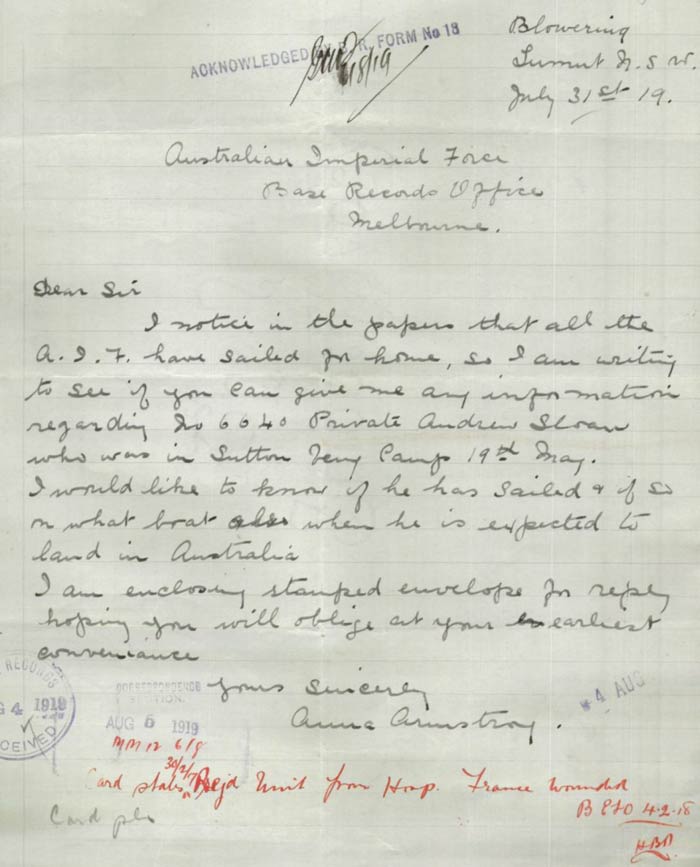 ACKNOWLEDGED B.R. FORM No 18
Blowering
Tumut N. S. W.
July 31st 19.
Australian Imperial Force
Base Records Office
Melbourne.
Dear Sir
I notice in the papers that all the
A. I. F. have sailed for home, so I am writing
to see if you can give me any information
regarding No 6640 Private Andrew Sloan
who was in Sutton Veny Camp 19th May.
I would like to know if he has sailed & if so
on what boat also when he is expected to
land in Australia
I am enclosing stamped envelope for reply
hoping you will oblige at your earliest
convenience
Yours Sincerly
Anna Armstrong.
RECORDS
G 4 1919
CEIVED
CORRESPONDENCE
SECTION.
AUG 6 1919
4 AUG
6/8
Card states Rejd Unit from Hosp. France wounded
4-2-18
Card pls